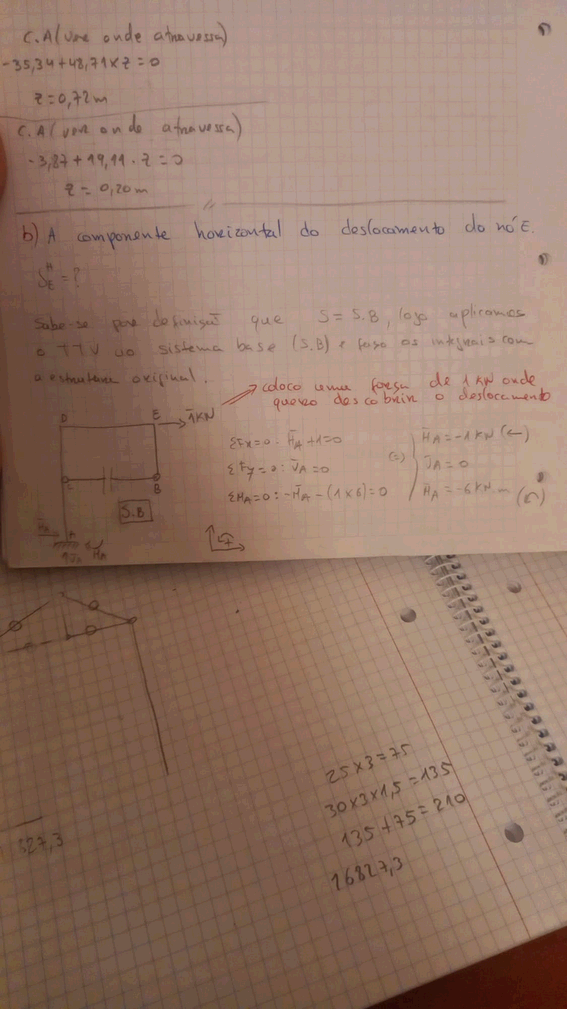 C.A (ver onde atravessa)
-35,34+48,71×z=0
z=0,72m
C.A (ver onde atravessa)
-3,87+19,11·z=0
z=0,20m
b) A componente horizontal do deslocamento do nó E.
δ_E^H=?
Sabe-se por definição que S=S.B, logo aplicamos
o TTV ao sistema base (S.B) e faço os integrais com
a estrutura original.
→ coloco uma força de 1 KN onde
quero descobrir o deslocamento
D E → 1KN
ΣFx=0: H̄A+1=0 (=) H̄A=-1KN (←)
ΣFy=0: V̄A=0 V̄A=0
ΣMA=0: -M̄A-(1×6)=0 M̄A=-6KN.m
C B
S.B
H̄A A
V̄A M̄A
+
25×3=75
30×3×1,5=135
135+75=210
16827,3
827,3